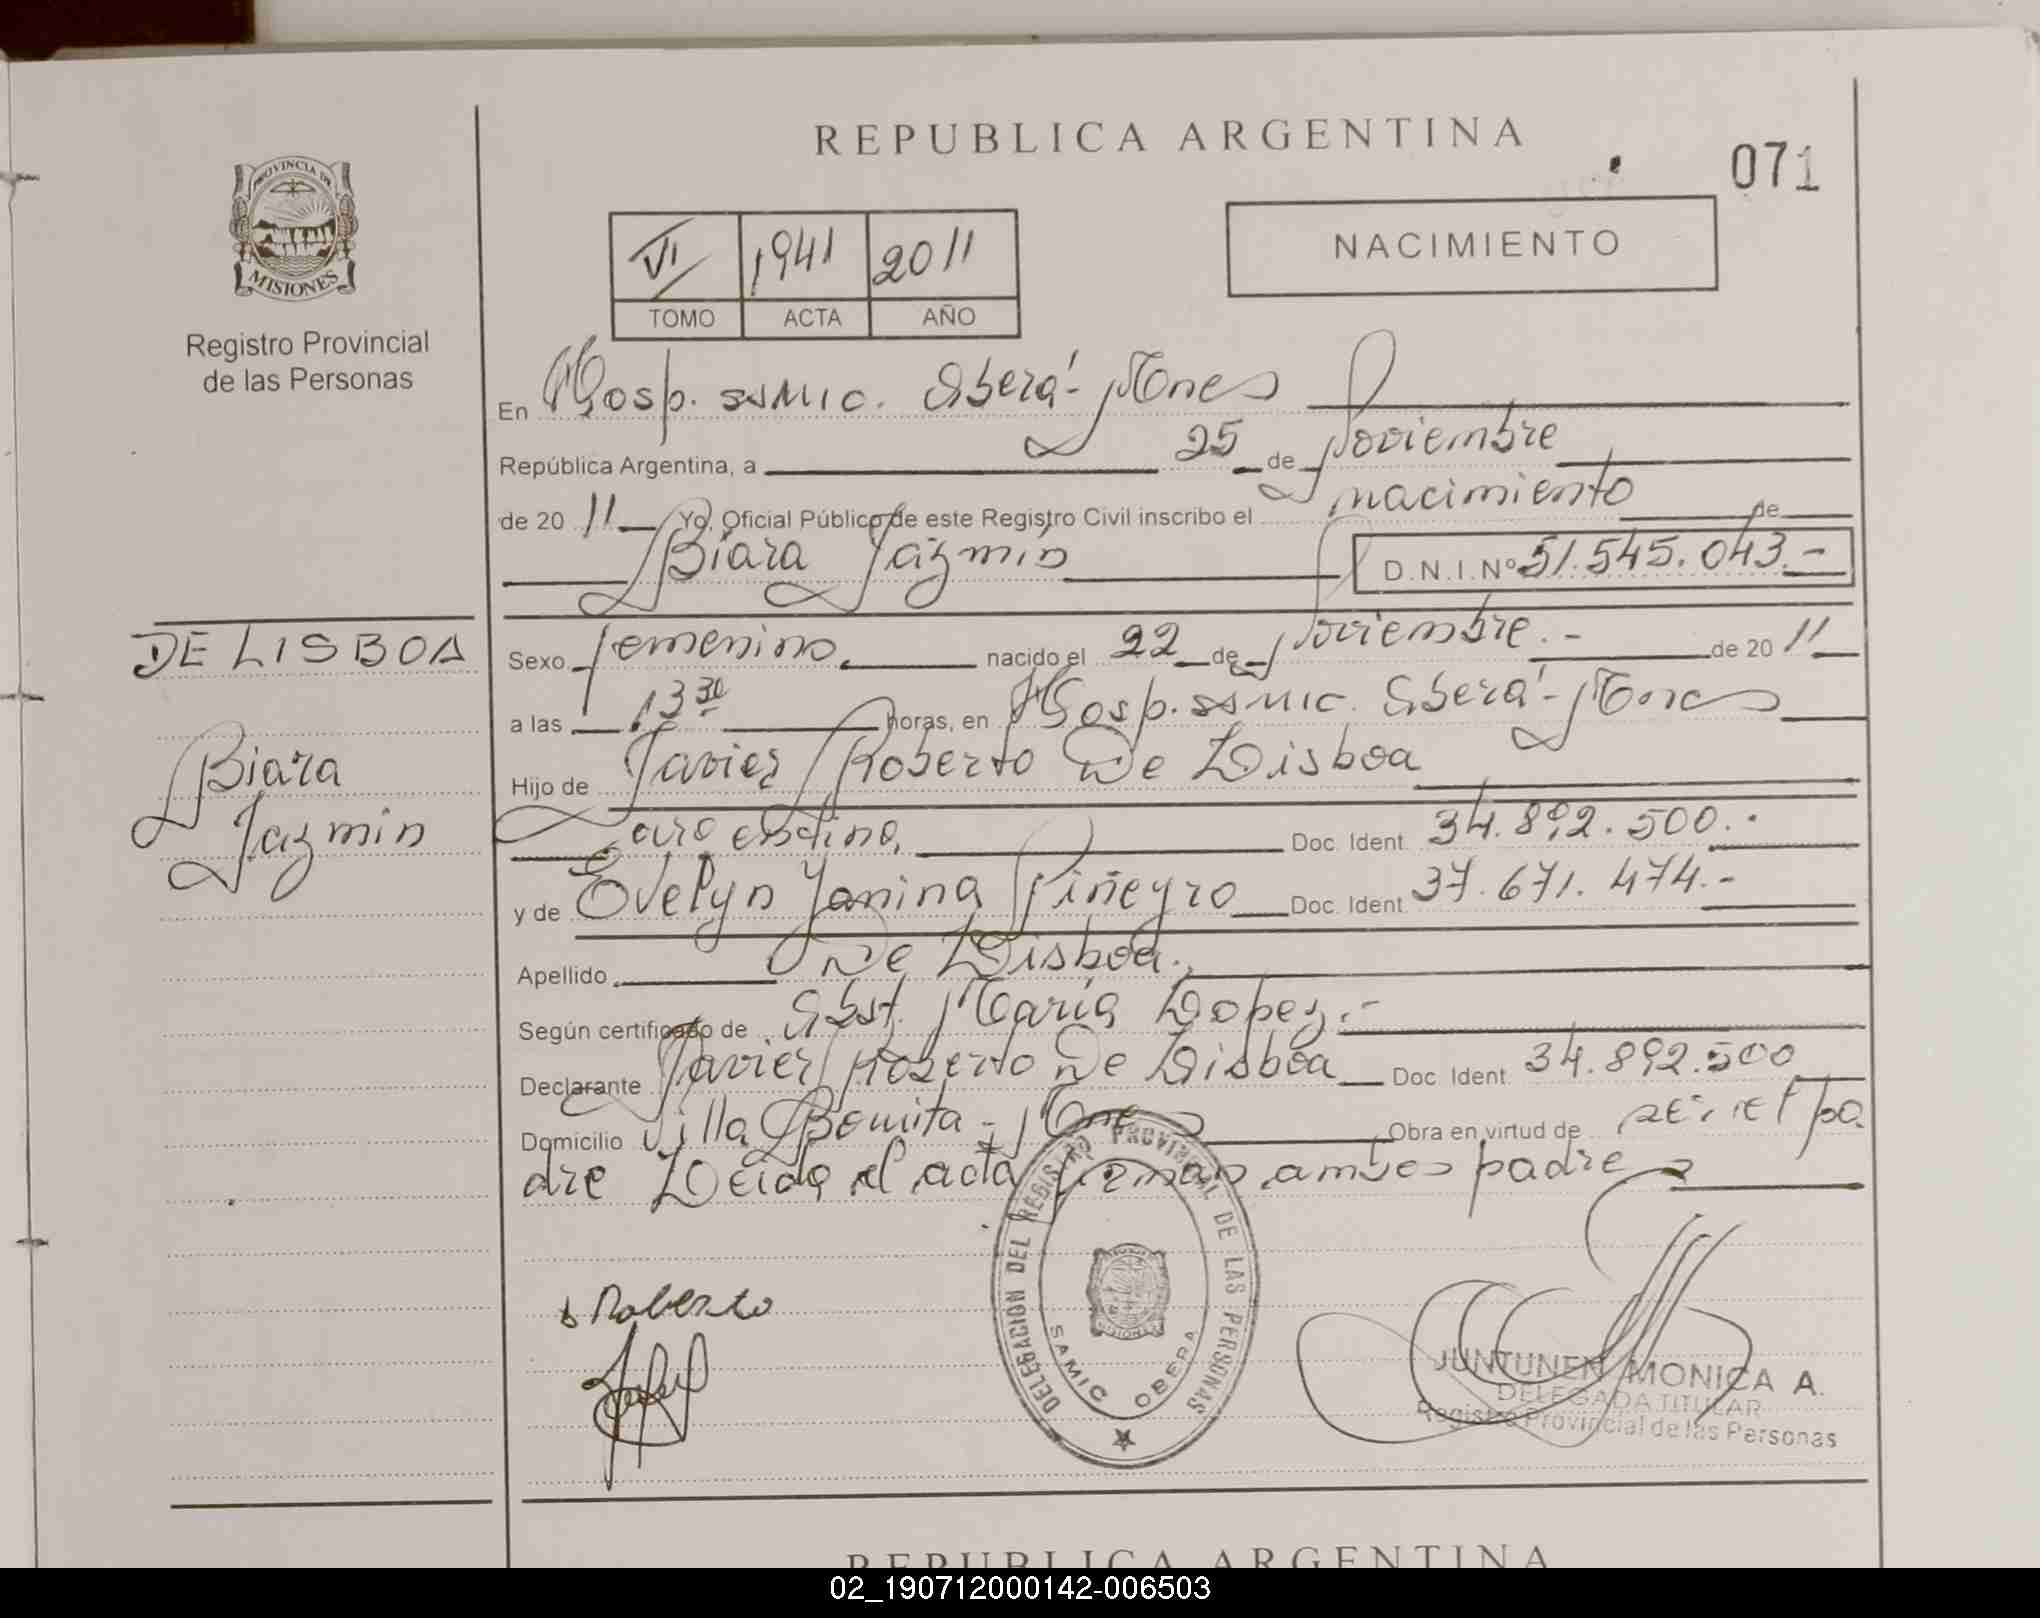 REPUBLICA ARGENTINA
071
PROVINCIA DE
MISIONES
Registro Provincial
de las Personas
VI 1941 2011
TOMO ACTA AÑO
NACIMIENTO
En Hosp. ssmic. Oberá - Mnes
República Argentina, a 25 de Noviembre
de 20 11 Yo, Oficial Público de este Registro Civil inscribo el nacimiento de
Biara Jazmin D.N.I.Nº 51.545.043.-
DE LISBOA
Biara
Jazmin
Sexo femenino. nacido el 22 de Noviembre.- de 20 11
a las 13 30 horas, en Hosp. ssmic. Oberá - Mnes
Hijo de Javier Roberto De Lisboa
argentino, Doc. Ident. 34.892.500.-
y de Evelyn Yanina Piñeyro Doc. Ident. 37.671.474.-
Apellido De Lisboa.
Según certificado de Obst. María Lopez.-
Declarante Javier Roberto De Lisboa Doc. Ident. 34.892.500
Domicilio Villa Bonita - Mnes Obra en virtud de ser el pa
dre Leida el acta firman ambos padres
Roberto
DELEGACION DEL REGISTRO PROVINCIAL DE LAS PERSONAS
SAMIC OBERA
MISIONES
JUNTUNEN MONICA A.
DELEGADA TITULAR
Registro Provincial de las Personas
REPUBLICA ARGENTINA
02_190712000142-006503